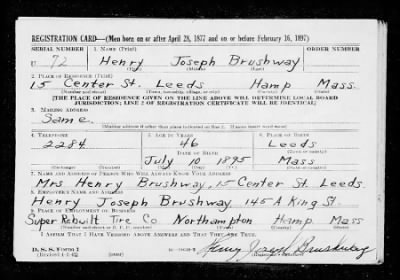 REGISTRATION CARD—(Men born on or after April 28, 1877 and on or before February 16, 1897)
SERIAL NUMBER 1. NAME (Print)
U 72 Henry Joseph Brushway
(First) (Middle) (Last)
2. PLACE OF RESIDENCE (Print)
15 Center St. Leeds Hamp Mass
(Number and street) (Town, township, village, or city) (County) (State)
[THE PLACE OF RESIDENCE GIVEN ON THE LINE ABOVE WILL DETERMINE LOCAL BOARD
JURISDICTION; LINE 2 OF REGISTRATION CERTIFICATE WILL BE IDENTICAL]
3. MAILING ADDRESS
Same.
[Mailing address if other than place indicated on line 2. If same insert word same]
4. TELEPHONE 5. AGE IN YEARS 6. PLACE OF BIRTH
2284 46 Leeds
DATE OF BIRTH (Town or county)
July 10 1895 Mass
(Exchange) (Number) (Mo.) (Day) (Yr.) (State or country)
7. NAME AND ADDRESS OF PERSON WHO WILL ALWAYS KNOW YOUR ADDRESS
Mrs Henry Brushway, 15 Center St. Leeds
8. EMPLOYER'S NAME AND ADDRESS
Henry Joseph Brushway 145A King St.
9. PLACE OF EMPLOYMENT OR BUSINESS
Super Rebuilt Tire Co Northampton Hamp. Mass
(Number and street or R. F. D. number) (Town) (County) (State)
I AFFIRM THAT I HAVE VERIFIED ABOVE ANSWERS AND THAT THEY ARE TRUE.
D. S. S. Form 1
(Revised 4-1-42) (over) Henry Joseph Brushway